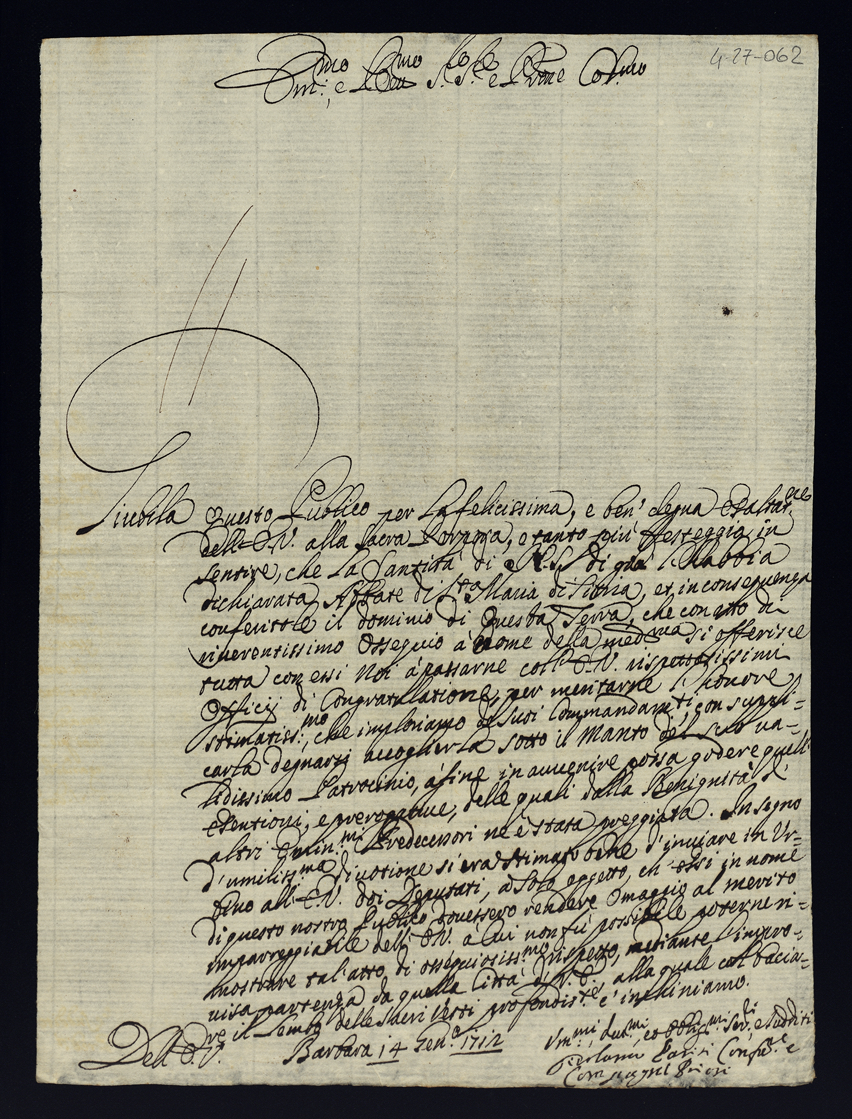 4-27-062
Em.mo e Re.mo S.r S.r e P.rone Col.mo
Giubila questo Publico per la felicissima, e ben degna esaltat.ne
dell'E.V. alla Sacra Porpora, e tanto più festeggia in
sentire, che La Santità di N.S. di già l'habbia
dichiarata Abbate di S.ta Maria di Sitria, et in conseguenza
conferitole il dominio di questa Terra, che con atto di
riverentissimo ossequio à nome della medema si offerisce
tutta con essi Noi à passarne coll'E.V. rispettosissimi
Officij di Congratulatione, per meritarne l'honore
stimatiss.mo, che imploriamo de Suoi Commandamenti, con suppli=
carla degnarsi accoglierla sotto il Manto del Suo va=
lidissimo Patrocinio, à fine in avvenire possa godere quell'
esentioni, e prerogative, delle quali dalla Benignità d'
altri Emin.mi Predecessori ne è stata preggiata. In segno
d'umiliss.ma divotione si era stimato bene d'inviare in Ur=
bino all'E.V. doi Deputati, à solo oggetto, ch'essi in nome
di questo nostro Publico dovessero rendere omaggio al merito
impareggiabile dell'E.V. à cui non fù possibile poterne ri=
mostrare tal'atto di ossequiosissimo rispetto, mediante l'impro=
visa partenza da quella Città di V.E., alla quale col bacia=
re il Lembo delle Sacri Vesti profondis.te c'inchiniamo.
Dell'E.V. Barbara 14 Gen.o 1712
Um.mi, Dev.mi, et Oblig.mi Ser.di e Sudditi
Conf.re e
Compagni Priori